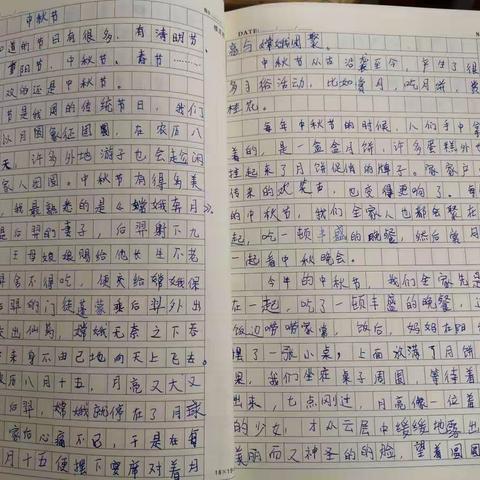 中秋节
道的节日有很多，有清明节、
重阳节、中秋节、春节……
欢的还是中秋节。
节是我国的传统节日，我们
以月圆象征团圆，在农历八
天，许多外地游子也会赶回
家人团圆。中秋节有很多美
，我最熟悉的是《嫦娥奔月》。
是后羿的妻子，后羿射下九
王母娘娘赐给他长生不老
羿舍不得吃，便交给嫦娥保
后羿的门徒蓬蒙乘后羿外出
交出仙药，嫦娥无奈之下吞
来身不由己地向天上飞去。
农历八月十五，月亮又大又
后羿，嫦娥就停在了月球
家后心痛不已，于是在每
月十五便摆下宴席对着月
DATE:
与嫦娥团聚。
中秋节从古沿袭至今，产生了很
多习俗活动，比如赏月，吃月饼，赏
桂花。
每年中秋节的时候，人们手中拿
着的，是一盒盒月饼，许多蛋糕外
挂起来了月饼促销的牌子。家家户
传来的欢笑声，也变得更响了。每
的中秋节，我们全家人也都会聚在
起，吃一顿丰盛的晚餐，然后赏月
一起看中秋晚会。
今年的中秋节，我们全家先是
在一起，吃了一顿丰盛的晚餐，
饭边唠唠家常，饭后，妈妈在阳
摆了一张小桌，上面放满了月饼
果，我们坐在桌子周围，等待着
出来，七点刚过，月亮像一位羞
的少女，才从云层中缓缓地露出
美丽而又神圣的脸，望着圆圆